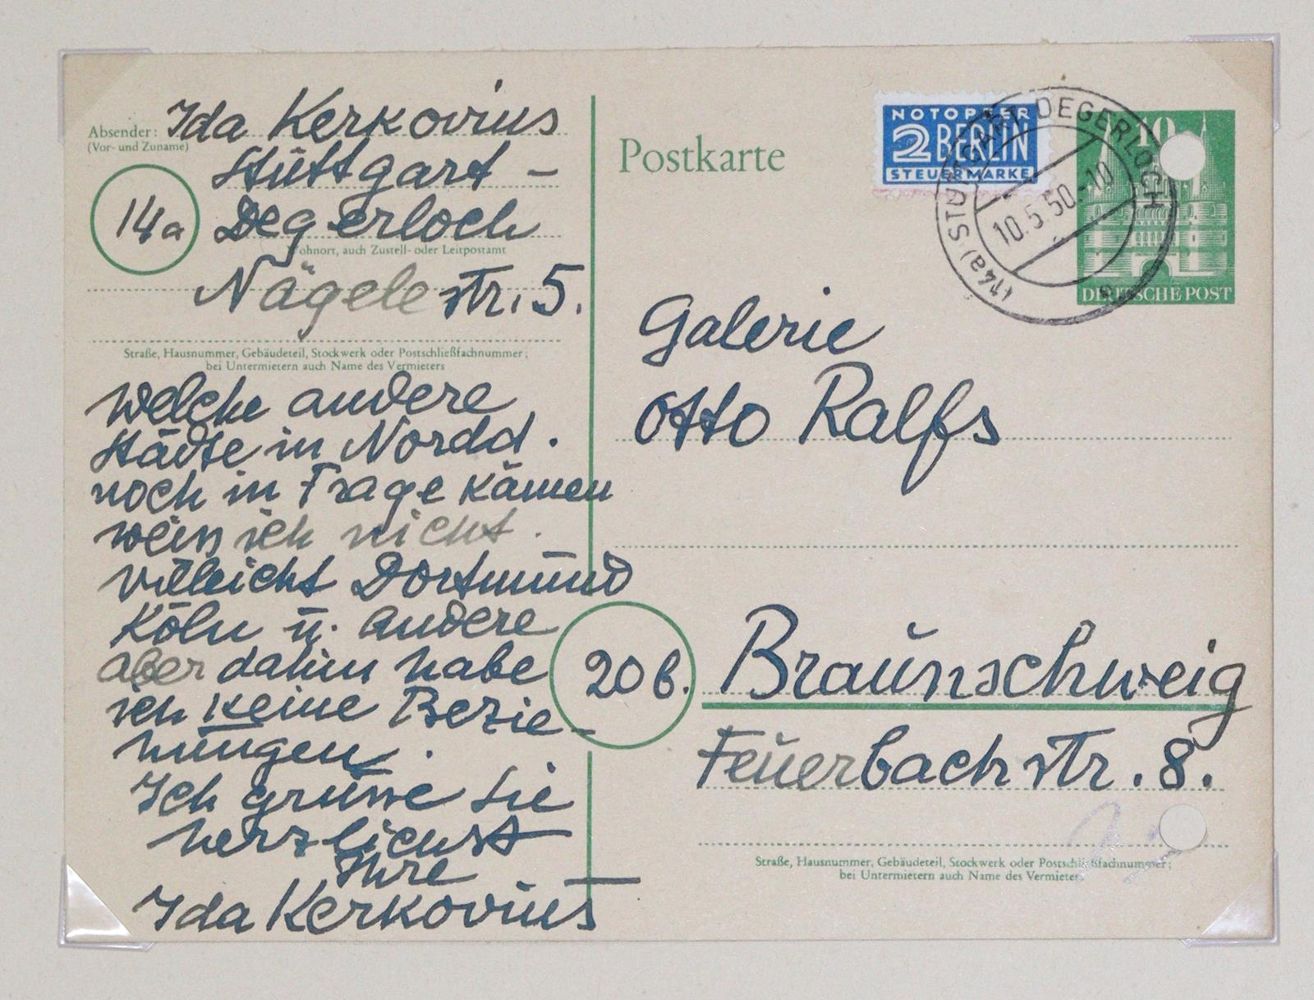 Absender: Ida Kerkovius
(Vor- und Zuname)
Stuttgart -
14a Degerloch
Wohnort, auch Zustell- oder Leitpostamt
Nägele str. 5.
Straße, Hausnummer, Gebäudeteil, Stockwerk oder Postschließfachnummer;
bei Untermietern auch Name des Vermieters
welche andere
Städte in Nordd.
noch in Frage kämen
weiss ich nicht.
villeicht Dortmund
Köln u. andere
aber dahin habe
ich keine Bezie-
hungen.
Ich grüsse Sie
herzlichst
Ihre
Ida Kerkovius
Postkarte
NOTOPFER
2 BERLIN
STEUERMARKE
(14a) STUTTGART-DEGERLOCH
10.5.50.-10
10
DEUTSCHE POST
Galerie
Otto Ralfs
20b. Braunschweig
Feuerbachstr. 8.
Straße, Hausnummer, Gebäudeteil, Stockwerk oder Postschließfachnummer;
bei Untermietern auch Name des Vermieters